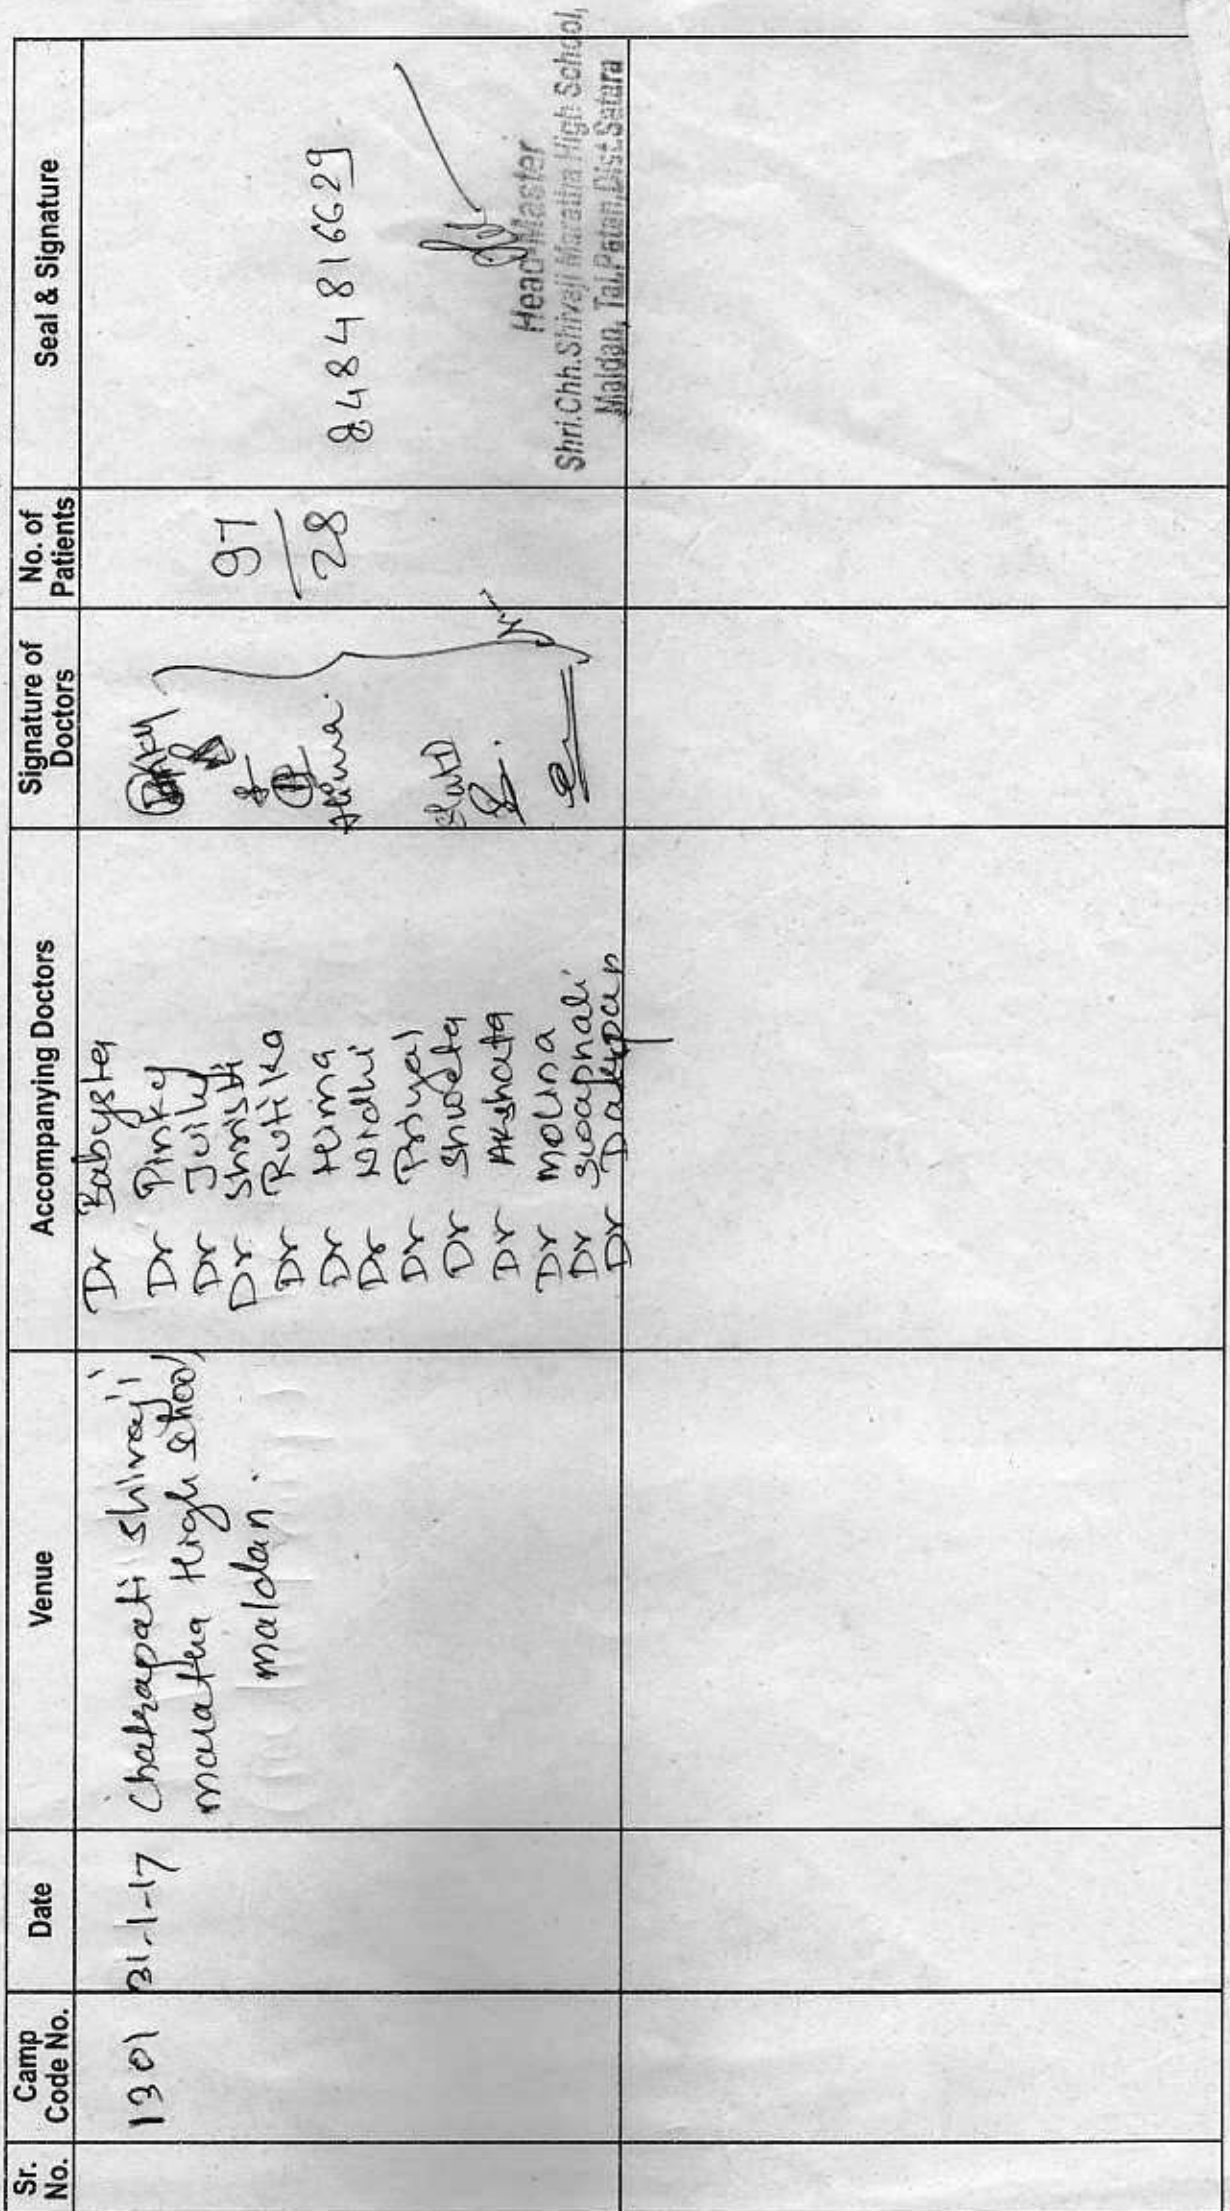 Sr. No.
Camp Code No.
Date
Venue
Accompanying Doctors
Signature of Doctors
No. of Patients
Seal & Signature
1301
31-1-17
Chatrapati Shivaji
maratha High School
maldan.
Dr Babysta
Dr Pinky
Dr Juily
Dr Shristi
Dr Rutika
Dr Hima
Dr Nidhi
Dr Priyal
Dr Shweta
Dr Akshata
Dr Mouna
Dr Swapnali
Dr Darpan
97
28
8484816629
Head Master
Shri.Chh.Shivaji Maratha High School,
Maldan, Tal.Patan,Dist.Satara